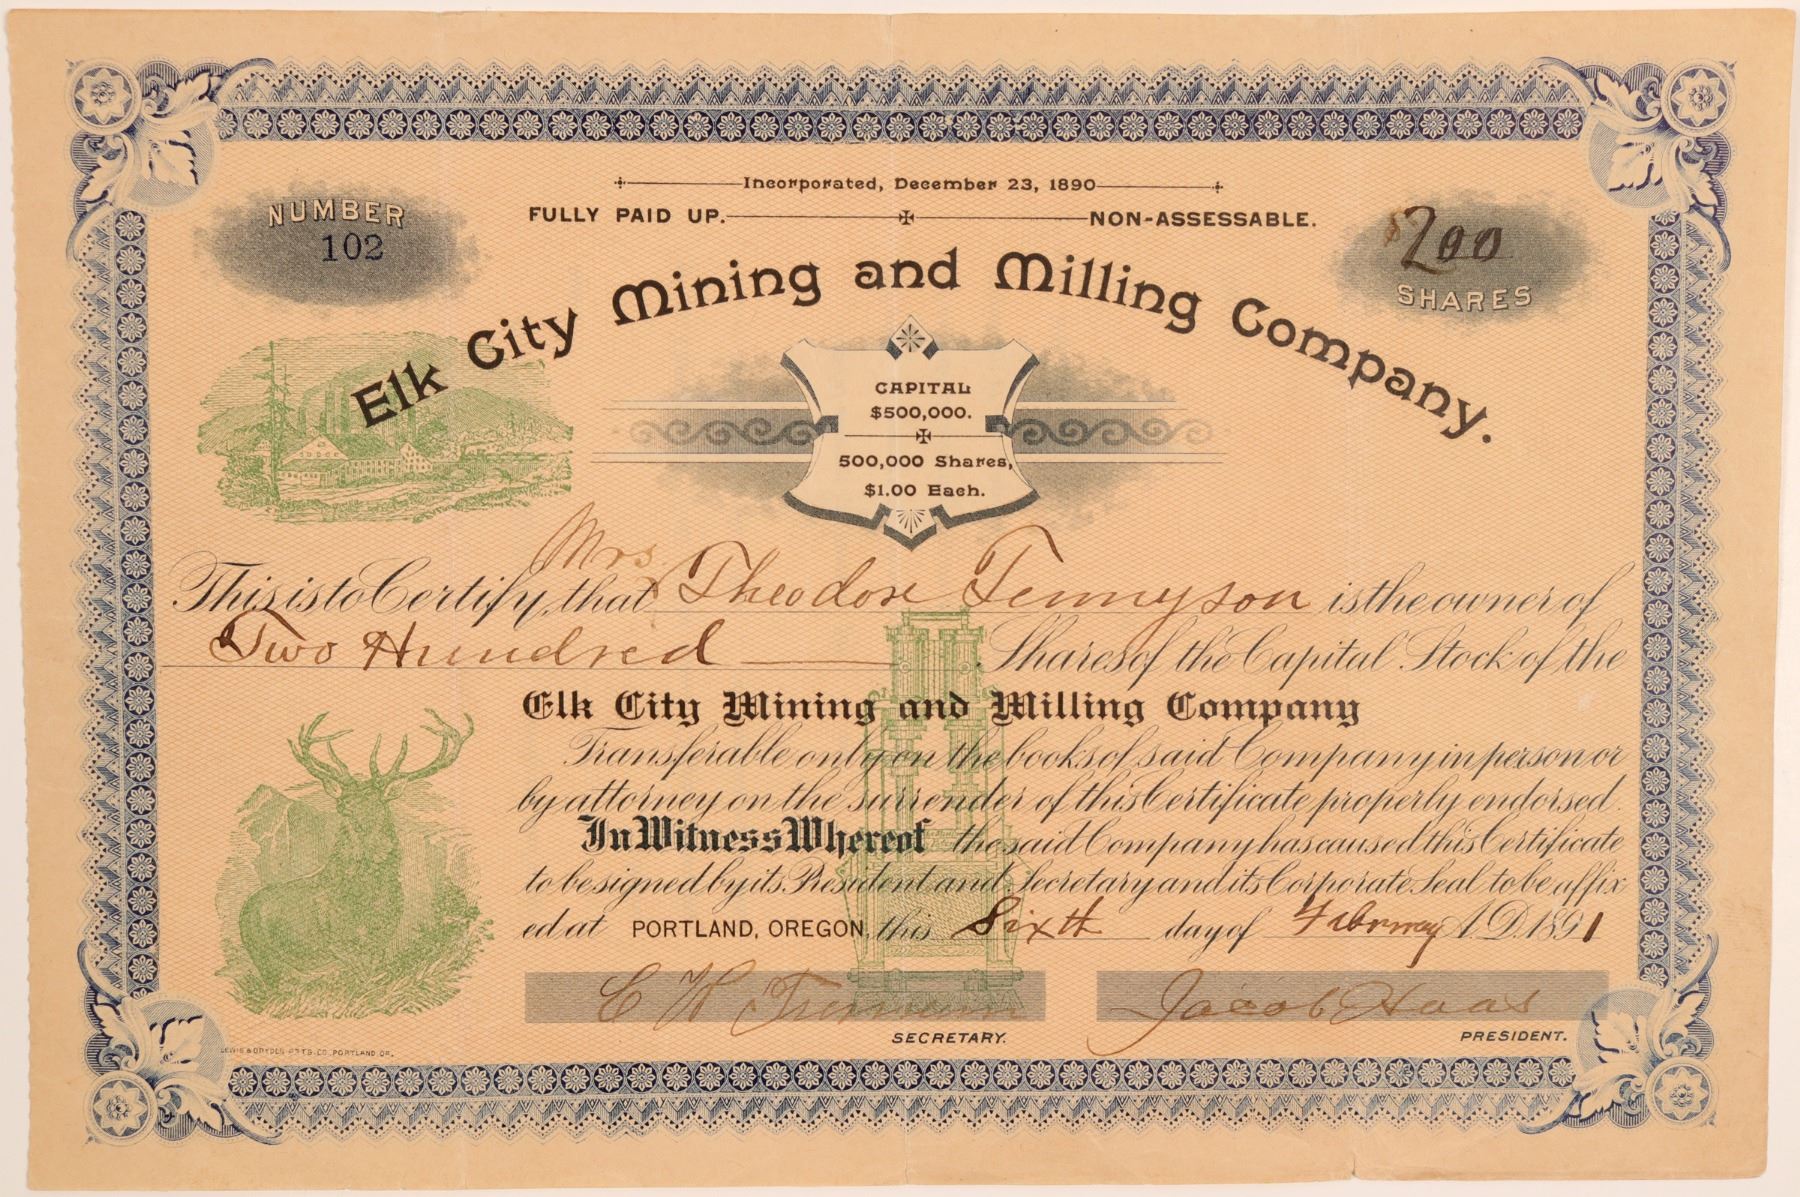 Incorporated, December 23, 1890
FULLY PAID UP. NON-ASSESSABLE.
NUMBER
102
$200
SHARES
Elk City Mining and Milling Company.
CAPITAL
$500,000.
500,000 Shares,
$1.00 Each.
Mrs
This is to Certify, that Theodore Tennyson is the owner of
Two Hundred Shares of the Capital Stock of the
Elk City Mining and Milling Company
Transferable only on the books of said Company in person or
by attorney on the surrender of this Certificate properly endorsed.
In Witness Whereof the said Company has caused this Certificate
to be signed by its President and Secretary and its Corporate Seal to be affix
ed at PORTLAND, OREGON, this Sixth day of February A.D. 1891
C W Jacob Haas
SECRETARY. PRESIDENT.
LEWIS & DRYDEN PRT'G. CO. PORTLAND OR.